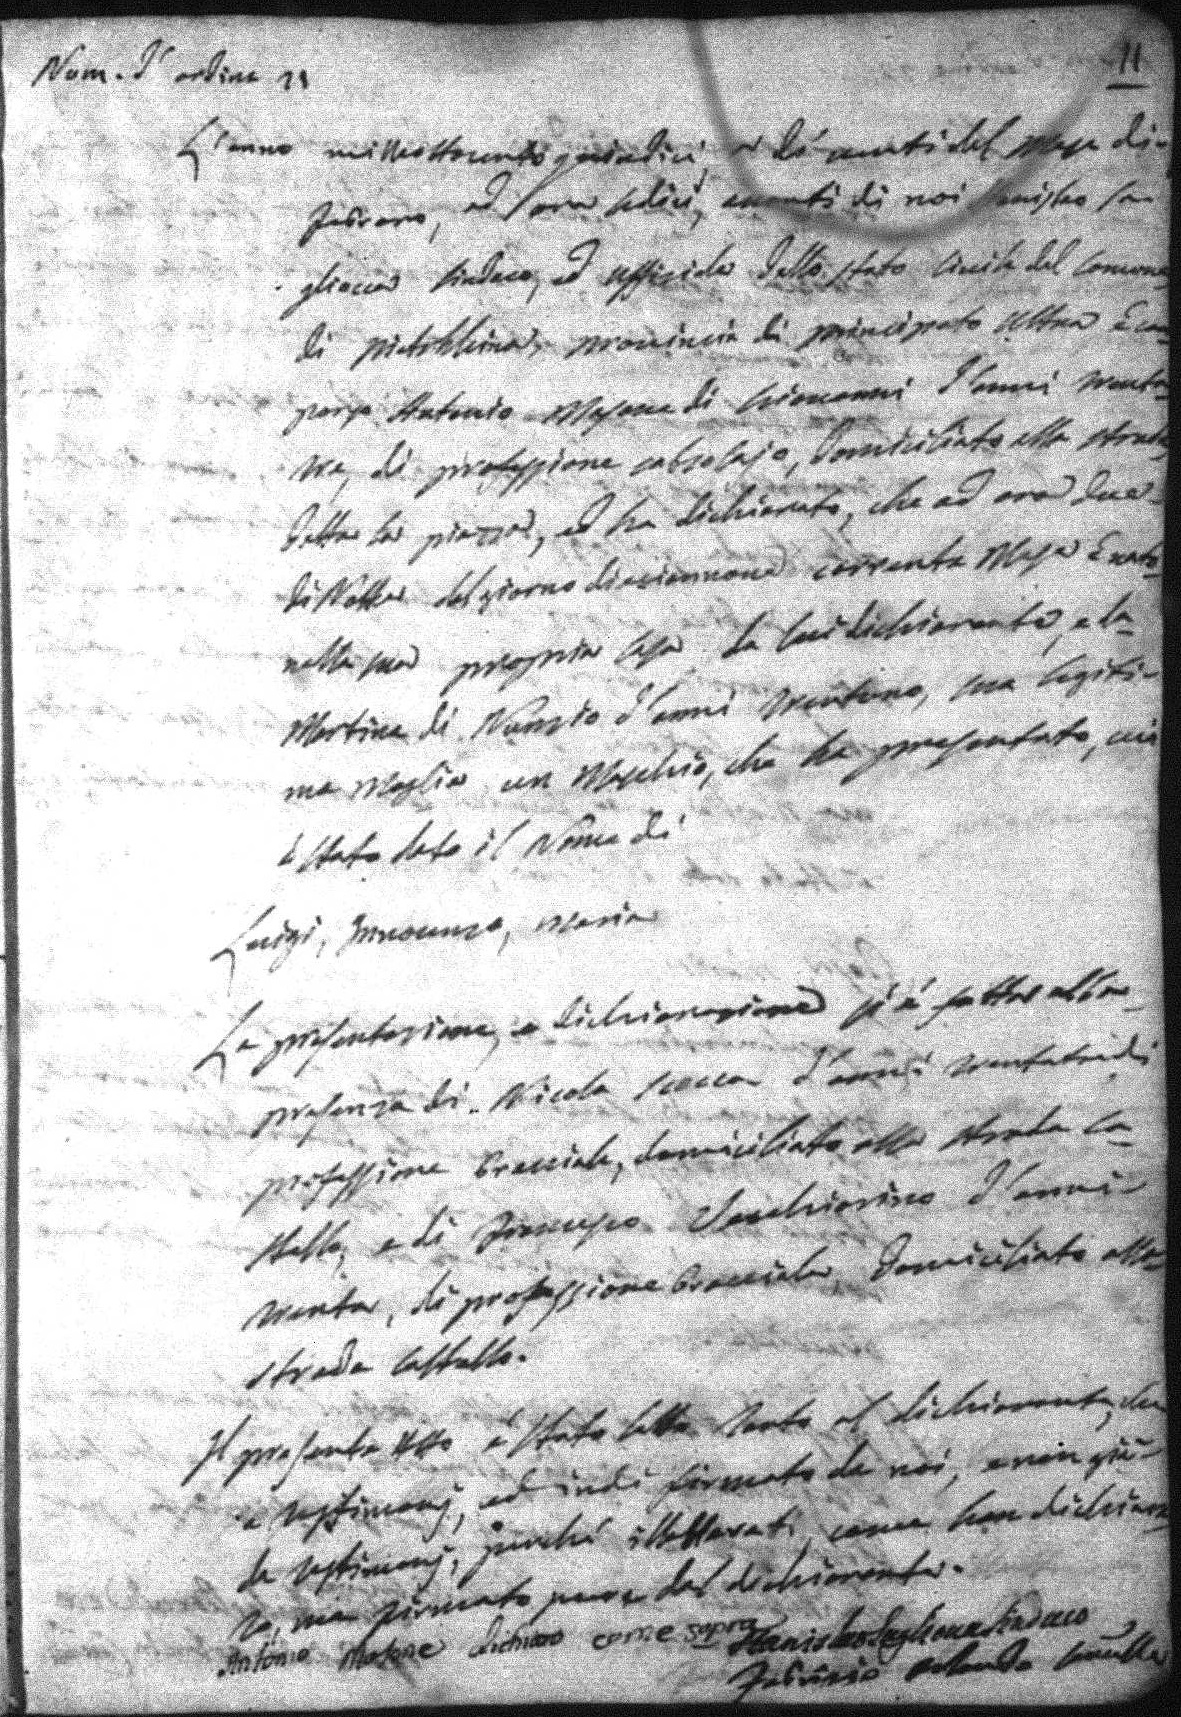 Num. d'ordine 11
11
L'anno millottocento quindici, a dì venti del Mese di-
Febraro, ad ore sedici, avanti di noi Stanislao Sa-
gliocca Sindaco, ed uffiziale dello stato Civile del Comune
di pietrelcina, provincia di principato Ultra è com-
parso Antonio Masone di Giovanni d'anni trenta-
tre, di professione calzolajo, domiciliato alla strada
detta la piazza, ed ha dichiarato, che ad ore due-
di Notte del giorno diecinnove corrente Mese è nato
nella sua propria Casa da lui dichiarante, e da-
Martina di Nunzio d'anni trentuno, sua legiti-
ma Moglie un Maschio, che ha presentato, cui
è stato dato il Nome di
Luigi, Innocenzo, Maria
La presentazione, e dichiarazione si è fatta alla-
presenza di Nicola Scocca d'anni trentatre di
professione Bracciale, domiciliato alla strada Ca-
stello, e di Francesco Vecchiarino d'anni-
trenta, di professione Bracciale, domiciliato alla-
strada Castello.
Il presente Atto è stato letto tanto al dichiarante, che
a testimonj, ed indi firmato da noi, e non già-
da testimonj, perché illetterati, come han dichiara-
to, ma firmato pure dal dichiarante.
Antonio Masone dichiaro come sopra
Stanislao Sagliocca Sindaco
Fabrizio Orlando